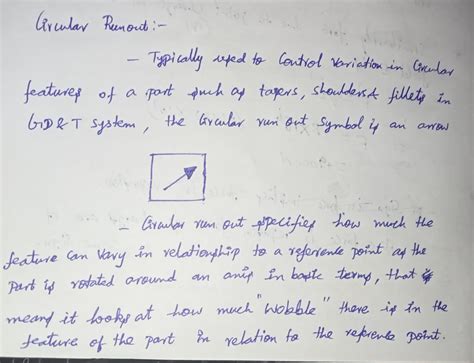 Circular Runout:-
- Typically used to Control Variation in Circular
features of a part such as tapers, shoulders & fillets in
GD&T System, the Circular run out Symbol is an arrow
- Circular run out specifies how much the
feature Can Vary in relationship to a reference point as the
Part is rotated around an axis In basic terms, that is
means it looks at how much "Wobble" there is in the
feature of the part in relation to the reference point.